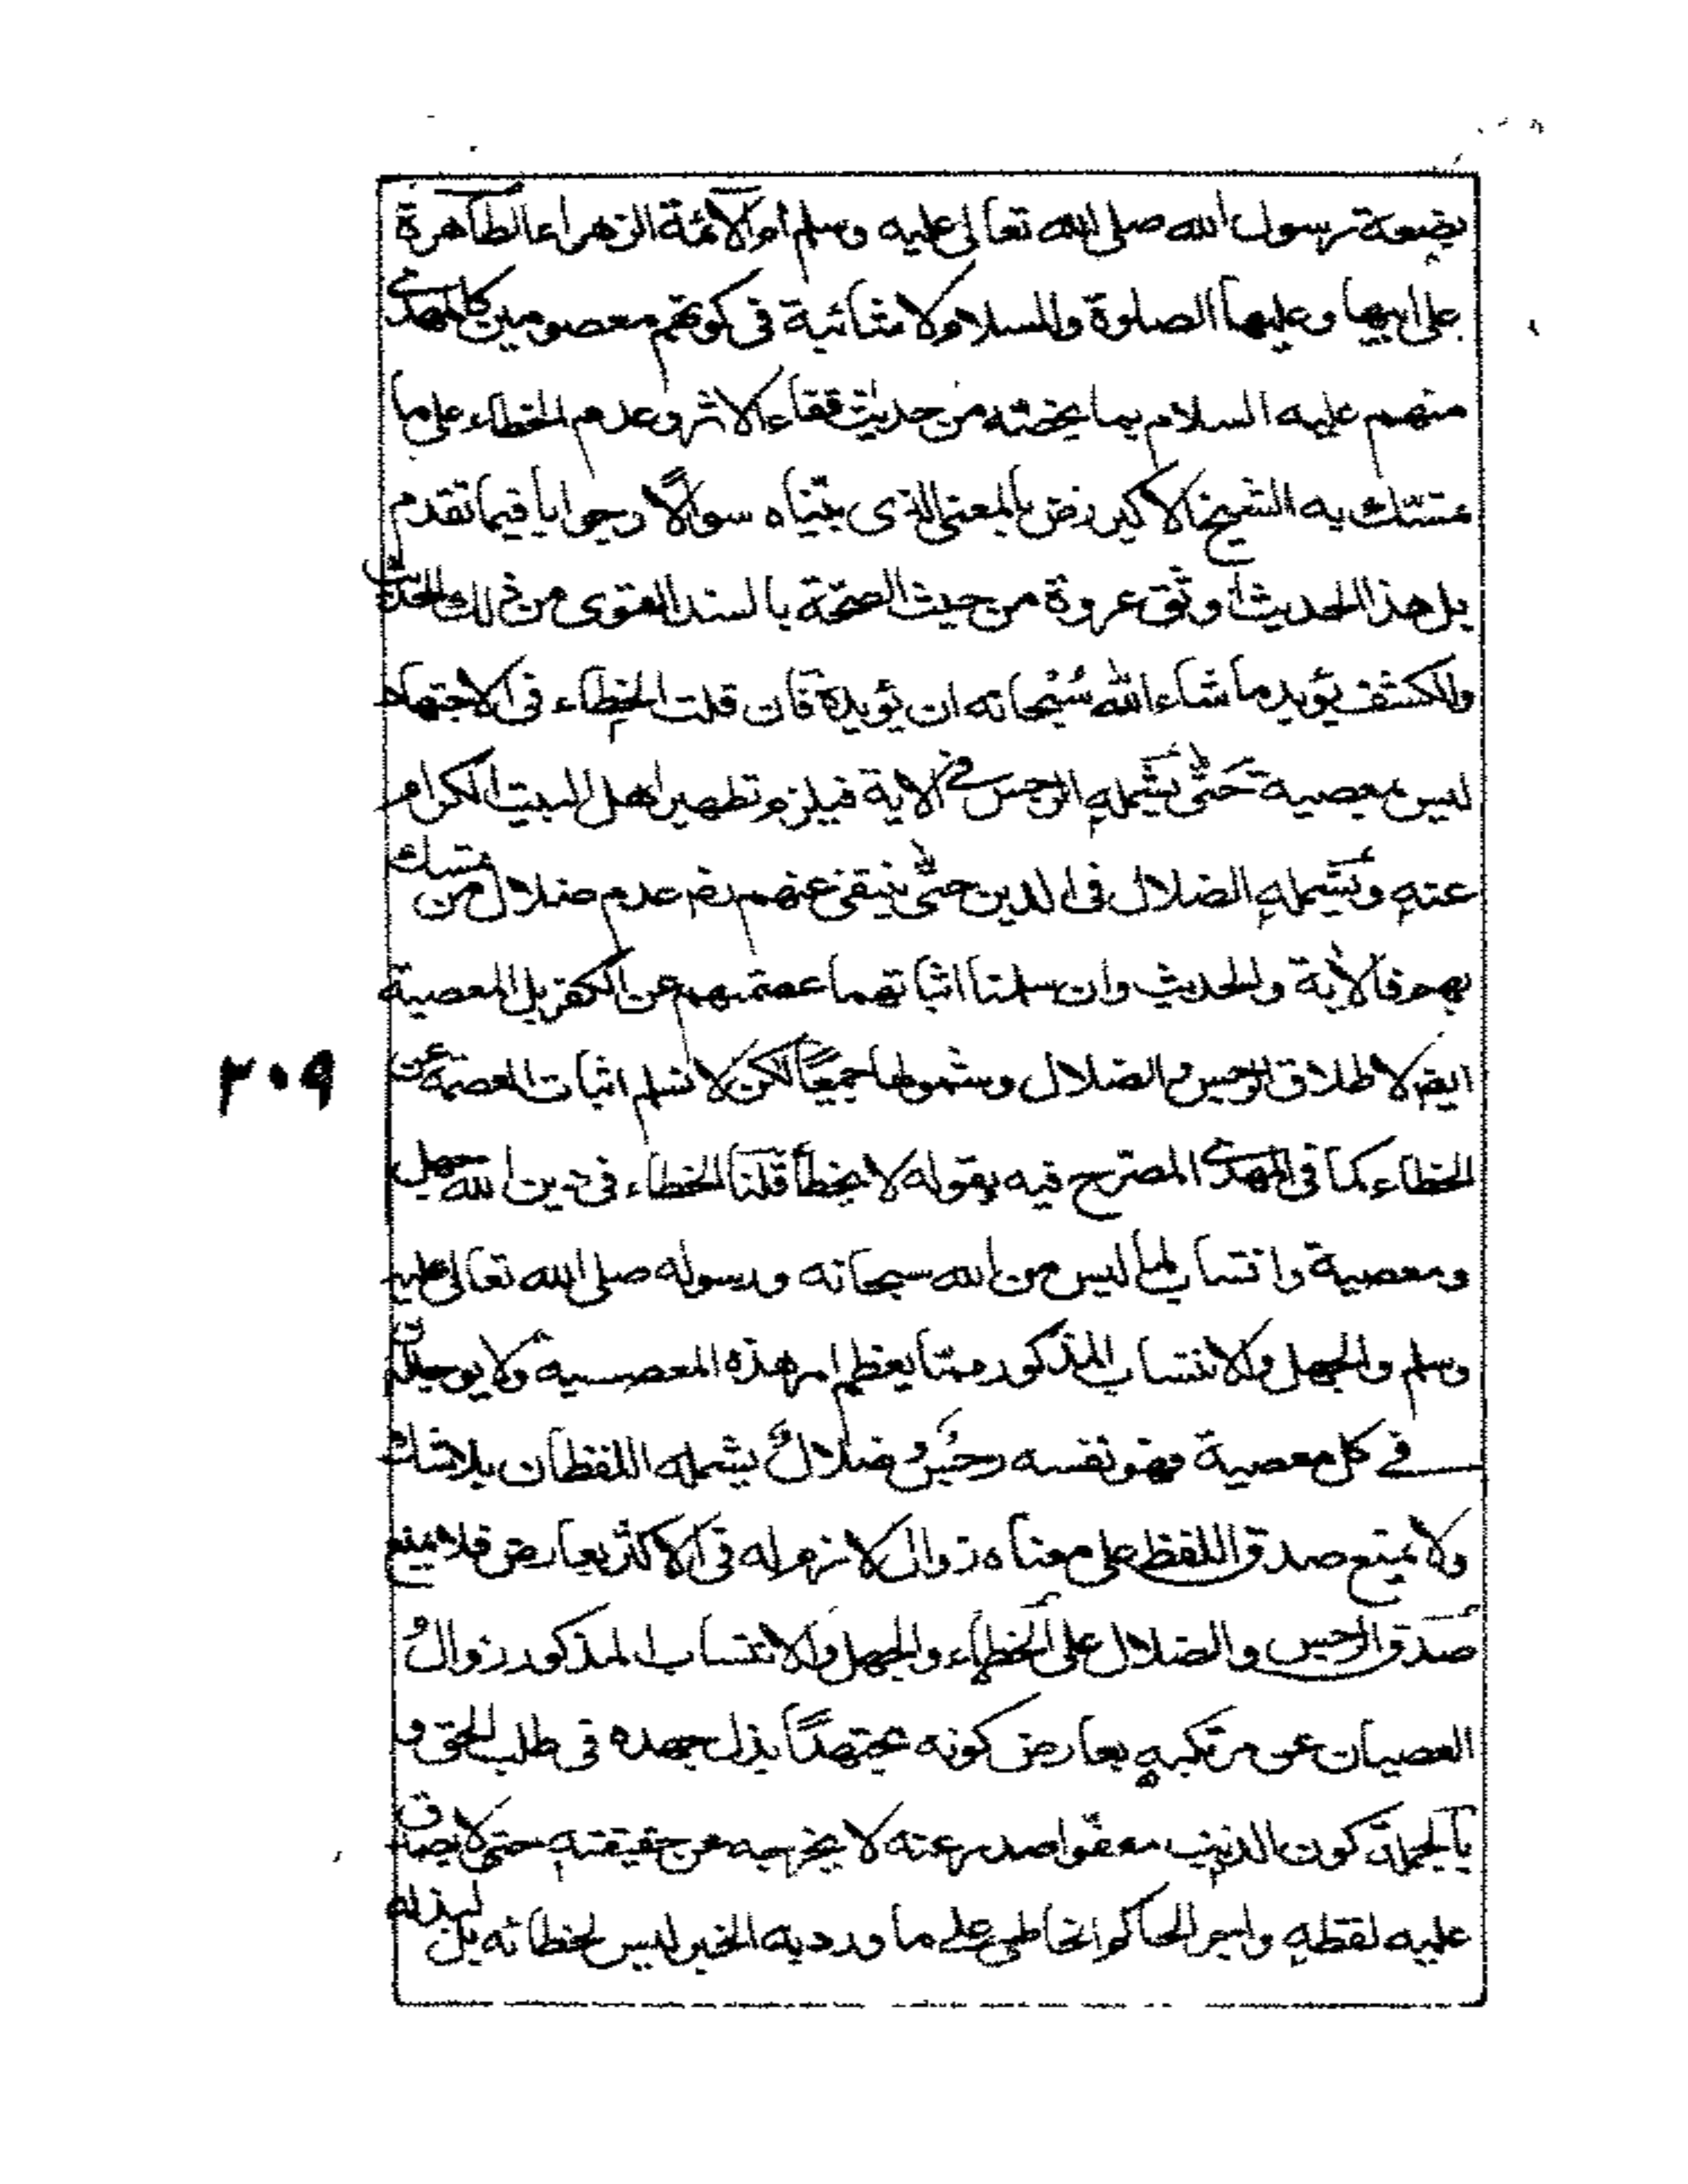 بضعة رسول الله صلى الله تعالى عليه وسلم ام الائمة الزهراء الطاهرة
على ابيها وعليها الصلوة والسلام ولا مثائبة فى كونهم معصومين كالمهدى
منهم عليه السلام بما يخصه من حديث قفاء الاثر وعدم الخطاء على ما
تمسك به الشيخ الاكبر رض بالمعنى الذى بيناه سوالًا وجوابا فيما تقدم
بل هذا الحديث اوثق عروة من حيث الصحة بالسند القوى من ذلك الحديث
والكشف يؤيد ما شاء الله سُبْحانه ان يؤيده فان قلت الخطاء فى الاجتهاد
ليس بمعصية حَتّى يشمله الرجس فى الاية فيلزم تطهير اهل البيت الكرام
عنه ويشمله الضلال فى الدين حتّى ينتفى عنهم رض عدم ضلال من تمسك
بهم فالاية والحديث وان سلمنا اثباتهما عصمتهم عن الكفر بل المعصية
ايضا لاطلاق الرجس والضلال وشمولها جميعًا لكن لا نسلم اثبات العصمة عن
الخطاء كما فى المهدى المصرّح فيه بقوله لا يخطأ قلنا الخطاء فى دين الله جهل
ومعصية وانتساب لما ليس من الله سبحانه ورسوله صلى الله تعالى عليه
وسلم والجهل والانتساب المذكور ممّا يعظم امر هذه المعصية ولا يوجدان
فى كل معصية فهو نفسه رجسٌ وضلالٌ يشمله اللفظان بلاشك
ولا يمنع صدق اللفظ على معناه زوال لازم له فى الاكثر بعارض فلا يمنع
صدق الرجس والضلال على الخطاء والجهل والانتساب المذكور زوالُ
العصيان عن مرتكبه بعارض كونه مجتهدًا بذل جهده فى طلب الحق و
بالجملة كون الذنب معفوا صدر عنه لا يخرجه عن حقيقته حتى لا يصدق
عليه لفظه واجر الحاكم الخاطى على ما ورد به الخبر ليس لخطائه بل لبذله
٢٠٩